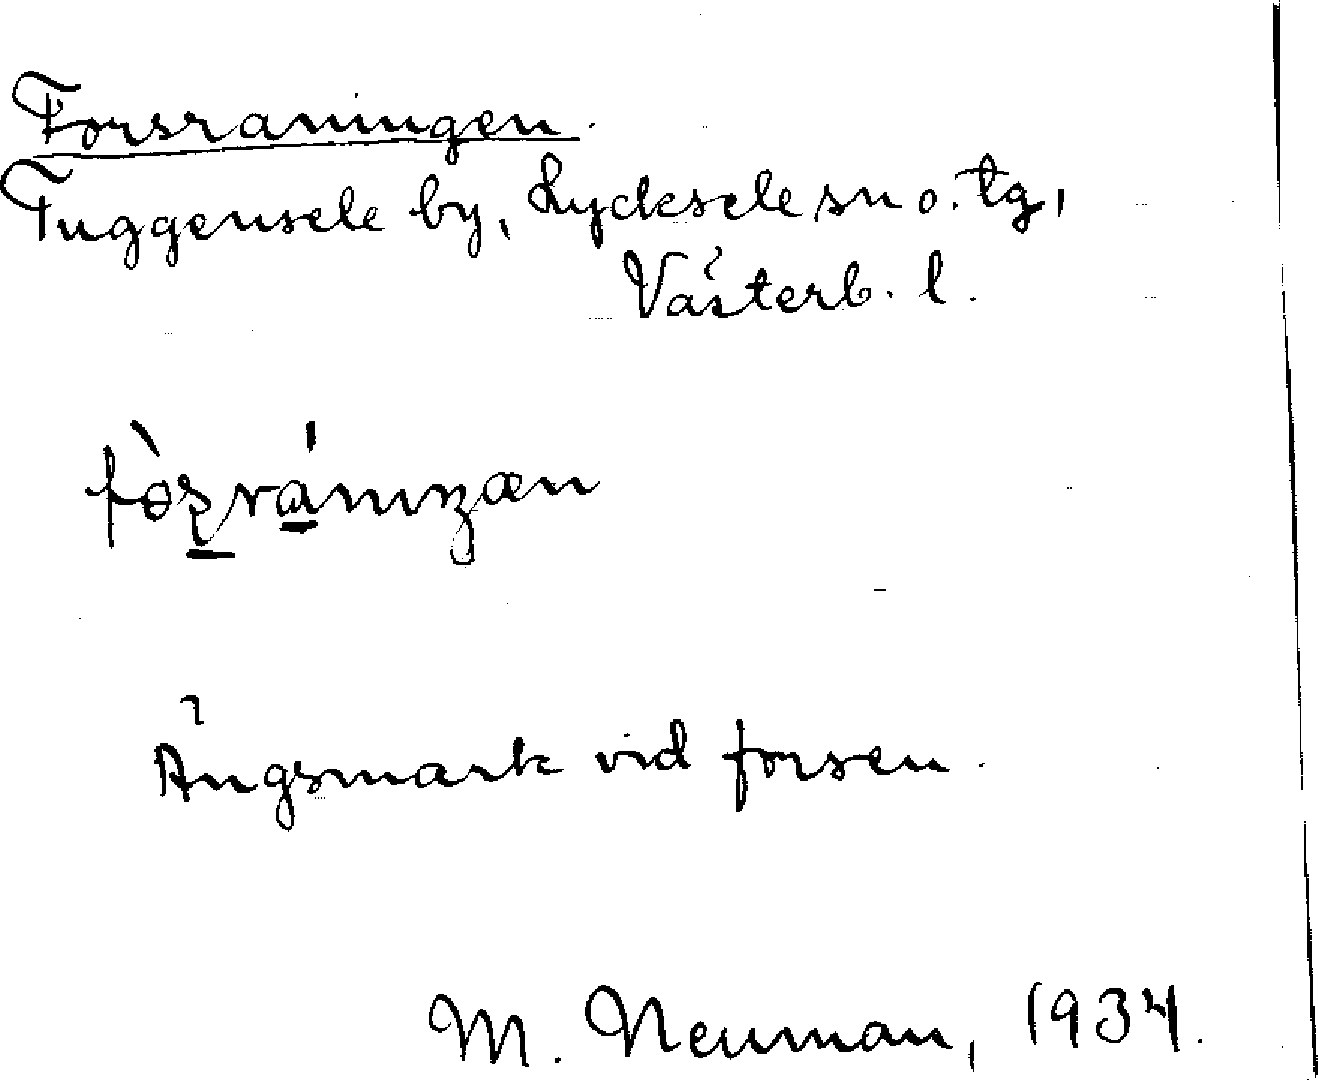 Forsraningen.
Tuggensele by, Lycksele sn o. tg,
Västerb. l.
Ängsmark vid forsen.
M. Neuman, 1934.